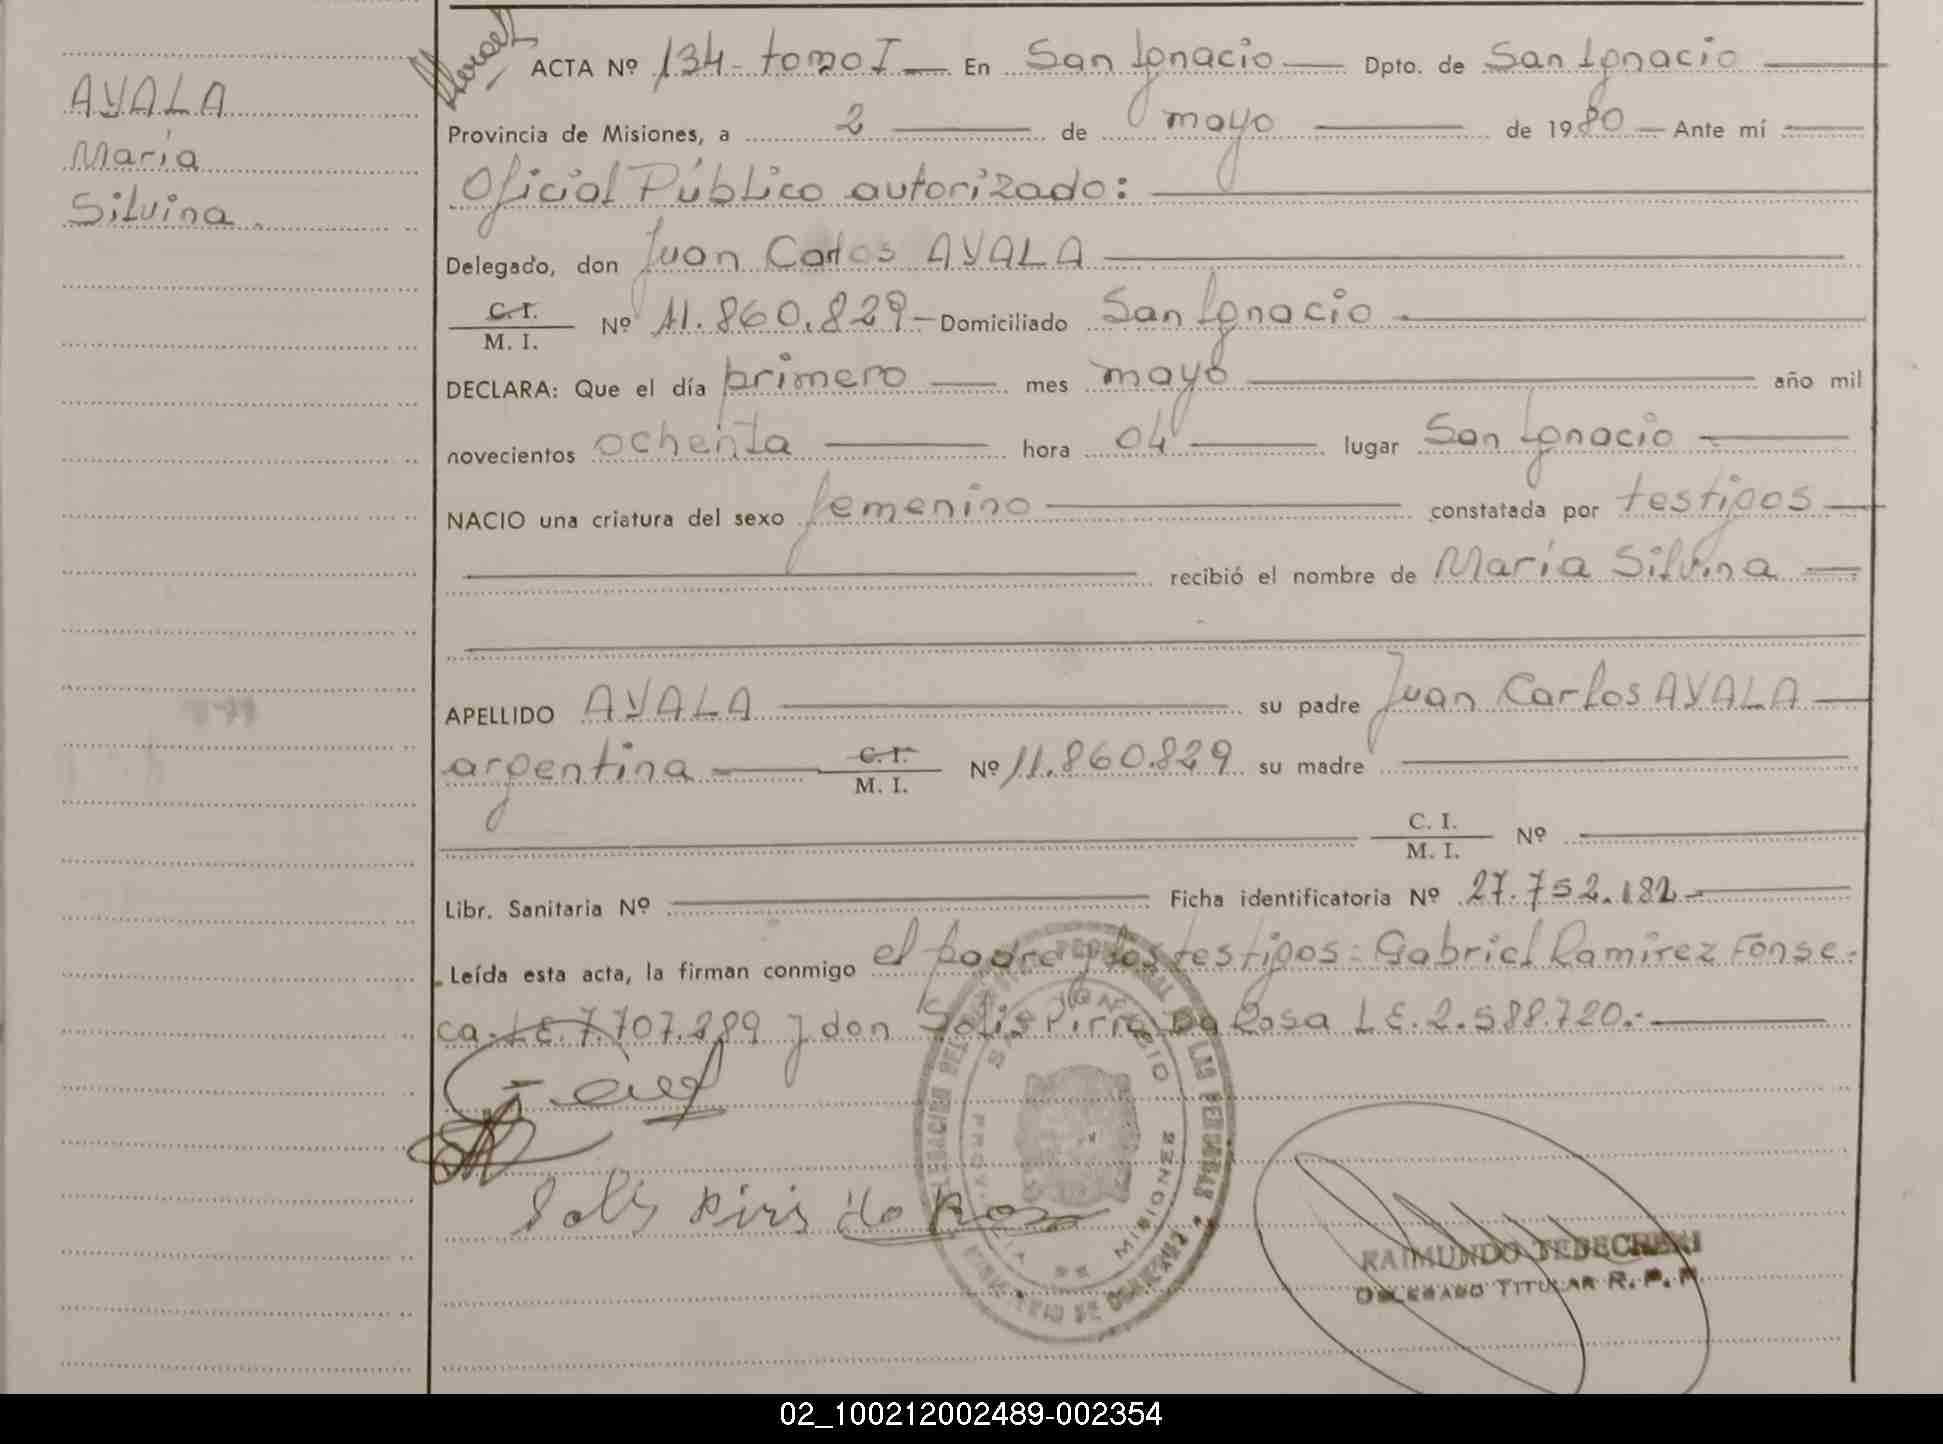 AYALA
María
Silvina.
ACTA Nº 134 - tomo I — En San Ignacio — Dpto. de San Ignacio —
Provincia de Misiones, a 2 — de mayo — de 1980 — Ante mí —
Oficial Público autorizado: —
Delegado, don Juan Carlos AYALA —
C. I.
M. I. Nº 11.860.829 — Domiciliado San Ignacio —
DECLARA: Que el día primero — mes mayo — año mil
novecientos ochenta — hora 04 — lugar San Ignacio —
NACIO una criatura del sexo femenino — constatada por testigos —
— recibió el nombre de María Silvina —
APELLIDO AYALA — su padre Juan Carlos AYALA —
argentina — C. I.
M. I. Nº 11.860.829 su madre —
C. I.
M. I. Nº —
Libr. Sanitaria Nº — Ficha identificatoria Nº 27.752.182 —
Leída esta acta, la firman conmigo el padre y los testigos: Gabriel Ramirez Fonse-
ca. LE. 7.707.289 y don Solis Piris Da Rosa LE. 2.588.720.- —
Solis Piris da Rosa
SAN IGNACIO
PROVINCIA DE MISIONES
DE LAS PERSONAS
MINISTERIO DE GOBIERNO
RAIMUNDO
DELEGADO TITULAR R. P. P.
02_100212002489-002354